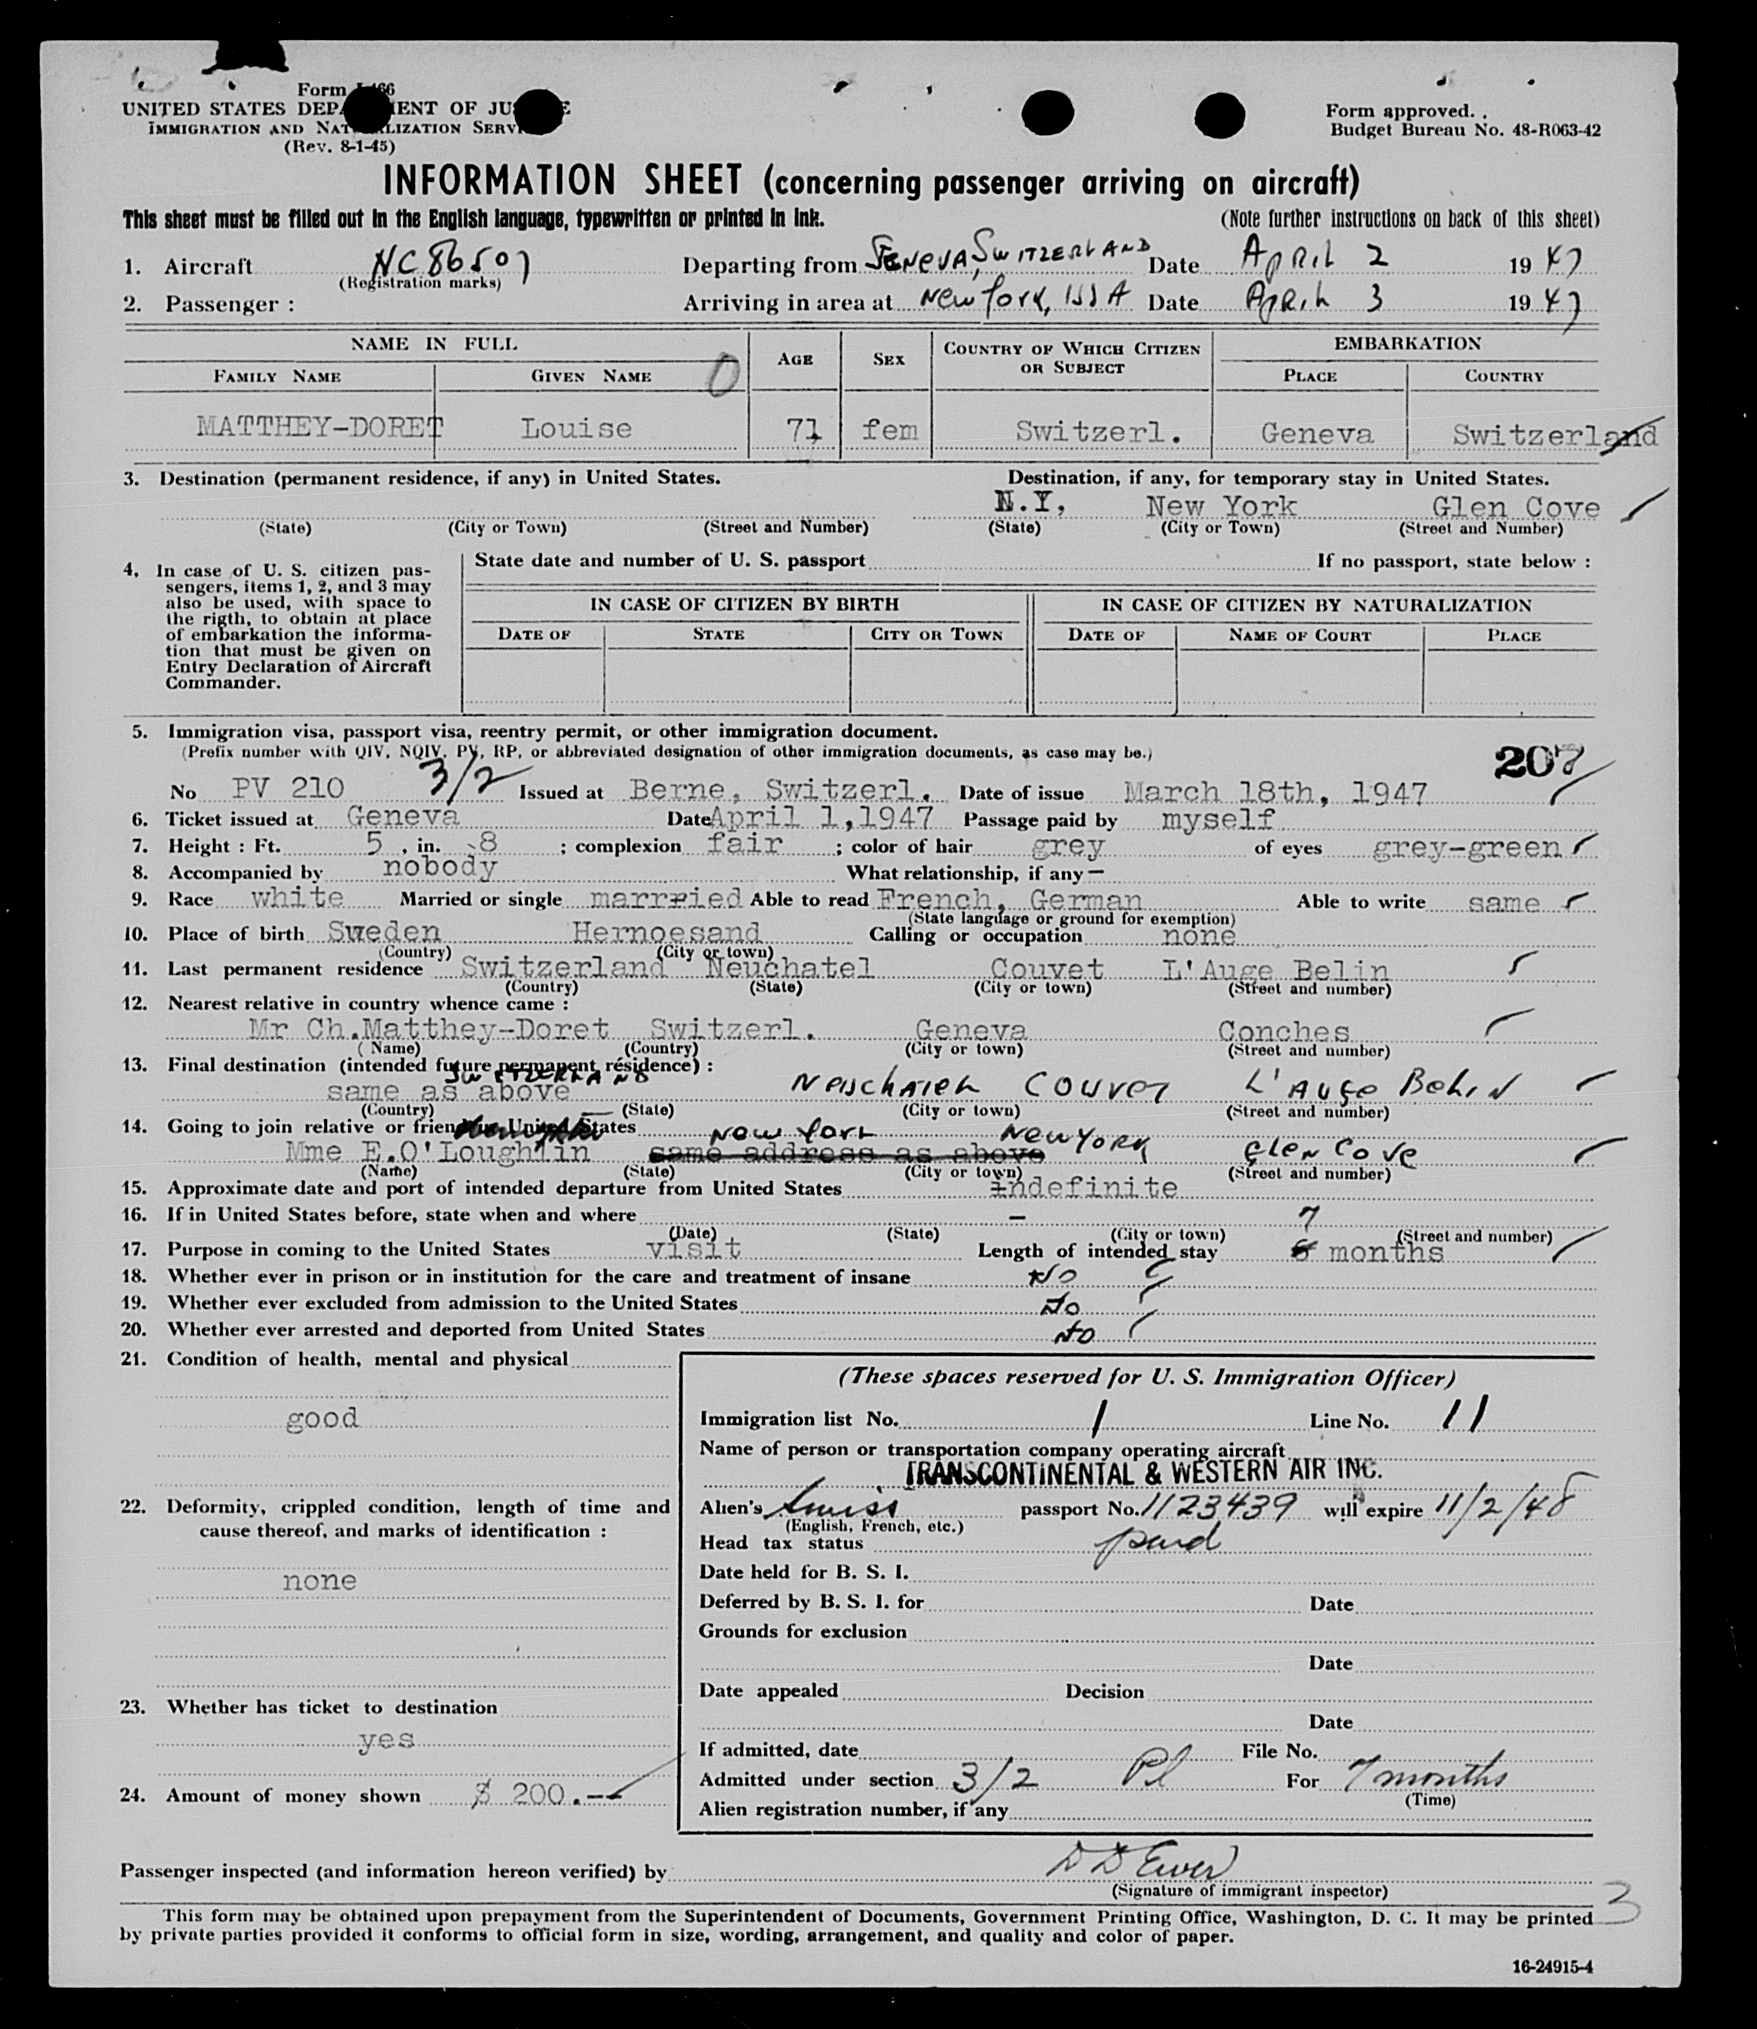 Form I-466
UNITED STATES DEPARTMENT OF JUSTICE
IMMIGRATION AND NATURALIZATION SERVICE
(Rev. 8-1-45)
Form approved.
Budget Bureau No. 48-R063-42
INFORMATION SHEET (concerning passenger arriving on aircraft)
This sheet must be filled out in the English language, typewritten or printed in ink. (Note further instructions on back of this sheet)
1. Aircraft NC86507 Departing from GENEVA, SWITZERLAND Date APRIL 2 1947
(Registration marks)
2. Passenger : Arriving in area at NEW YORK, USA Date APRIL 3 1947
NAME IN FULL AGE SEX COUNTRY OF WHICH CITIZEN OR SUBJECT EMBARKATION
FAMILY NAME GIVEN NAME 0 PLACE COUNTRY
MATTHEY-DORET Louise 71 fem Switzerl. Geneva Switzerland
3. Destination (permanent residence, if any) in United States. Destination, if any, for temporary stay in United States.
N.Y, New York Glen Cove
(State) (City or Town) (Street and Number) (State) (City or Town) (Street and Number)
4. In case of U. S. citizen pas-
sengers, items 1, 2, and 3 may
also be used, with space to
the rigth, to obtain at place
of embarkation the informa-
tion that must be given on
Entry Declaration of Aircraft
Commander.
State date and number of U. S. passport If no passport, state below :
IN CASE OF CITIZEN BY BIRTH IN CASE OF CITIZEN BY NATURALIZATION
DATE OF STATE CITY OR TOWN DATE OF NAME OF COURT PLACE
5. Immigration visa, passport visa, reentry permit, or other immigration document.
(Prefix number with QIV, NQIV, PV, RP, or abbreviated designation of other immigration documents, as case may be.) 207
No PV 210 3/2 Issued at Berne, Switzerl. Date of issue March 18th, 1947
6. Ticket issued at Geneva Date April 1,1947 Passage paid by myself
7. Height : Ft. 5 , in. 8 ; complexion fair ; color of hair grey of eyes grey-green
8. Accompanied by nobody What relationship, if any —
9. Race white Married or single marrried Able to read French, German Able to write same
(State language or ground for exemption)
10. Place of birth Sweden Hernoesand Calling or occupation none
(Country) (City or town)
11. Last permanent residence Switzerland Neuchatel Couvet L'Auge Belin
(Country) (State) (City or town) (Street and number)
12. Nearest relative in country whence came :
Mr Ch.Matthey-Doret Switzerl. Geneva Conches
(Name) (Country) (City or town) (Street and number)
13. Final destination (intended future permanent résidence) :
SWITZERLAND
same as above NEUCHATEL COUVET L'AUGE BELIN
(Country) (State) (City or town) (Street and number)
14. Going to join relative or friend in United States NEW YORK NEW YORK GLEN COVE
Mme E.O'Loughlin same address as above
(Name) (State) (City or town) (Street and number)
15. Approximate date and port of intended departure from United States indefinite
16. If in United States before, state when and where -
(Date) (State) (City or town) (Street and number)
17. Purpose in coming to the United States visit Length of intended stay 7 months
18. Whether ever in prison or in institution for the care and treatment of insane NO
19. Whether ever excluded from admission to the United States NO
20. Whether ever arrested and deported from United States NO
21. Condition of health, mental and physical
good
22. Deformity, crippled condition, length of time and
cause thereof, and marks of identification :
none
23. Whether has ticket to destination
yes
24. Amount of money shown $ 200.--
(These spaces reserved for U. S. Immigration Officer)
Immigration list No. 1 Line No. 11
Name of person or transportation company operating aircraft
TRANSCONTINENTAL & WESTERN AIR INC.
Alien's Swiss passport No. 1123439 will expire 11/2/48
(English, French, etc.)
Head tax status paid
Date held for B. S. I.
Deferred by B. S. I. for Date
Grounds for exclusion
Date
Date appealed Decision
Date
If admitted, date File No.
Admitted under section 3/2 Pl For 7 months
(Time)
Alien registration number, if any
Passenger inspected (and information hereon verified) by D D Ewer
(Signature of immigrant inspector)
3
This form may be obtained upon prepayment from the Superintendent of Documents, Government Printing Office, Washington, D. C. It may be printed
by private parties provided it conforms to official form in size, wording, arrangement, and quality and color of paper.
16-24915-4